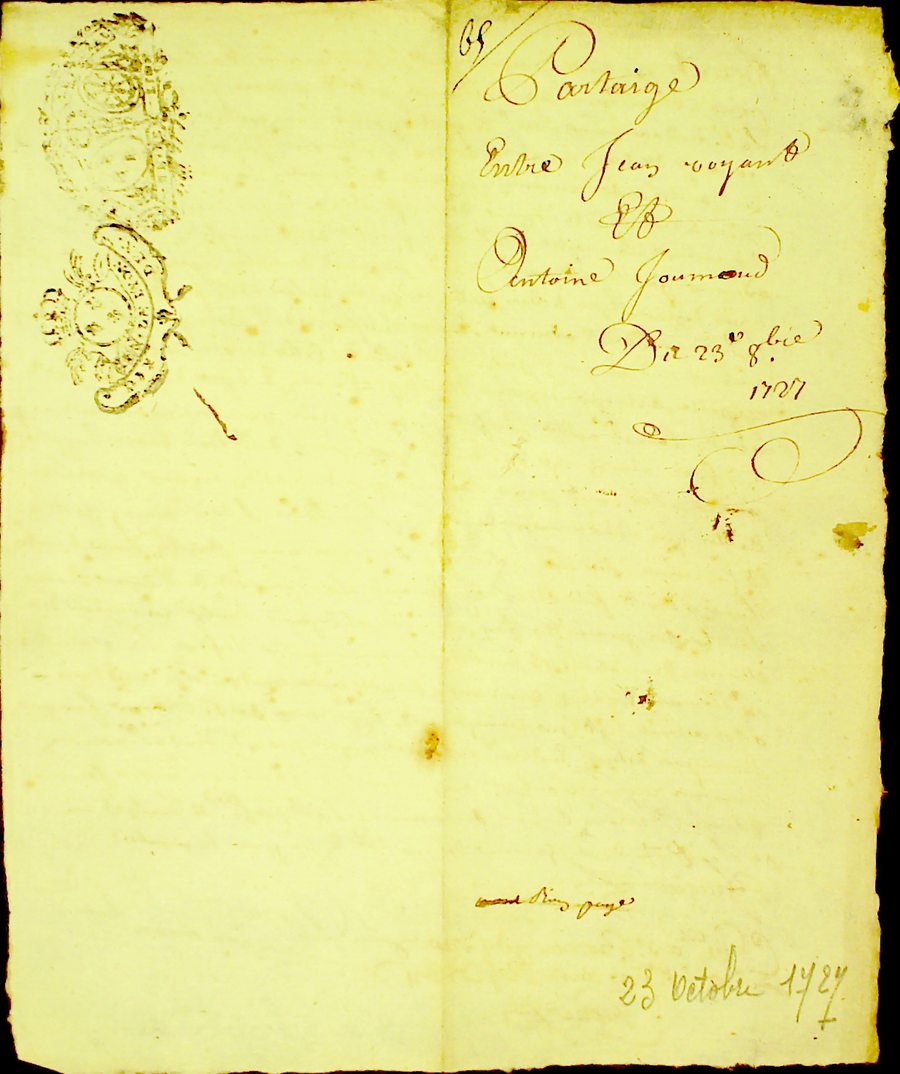 65
Partaige
Entre Jean voyant
Et
Antoine Joumaud
Du 23e 8bre
1727
Rien paye
23 Octobre 1727